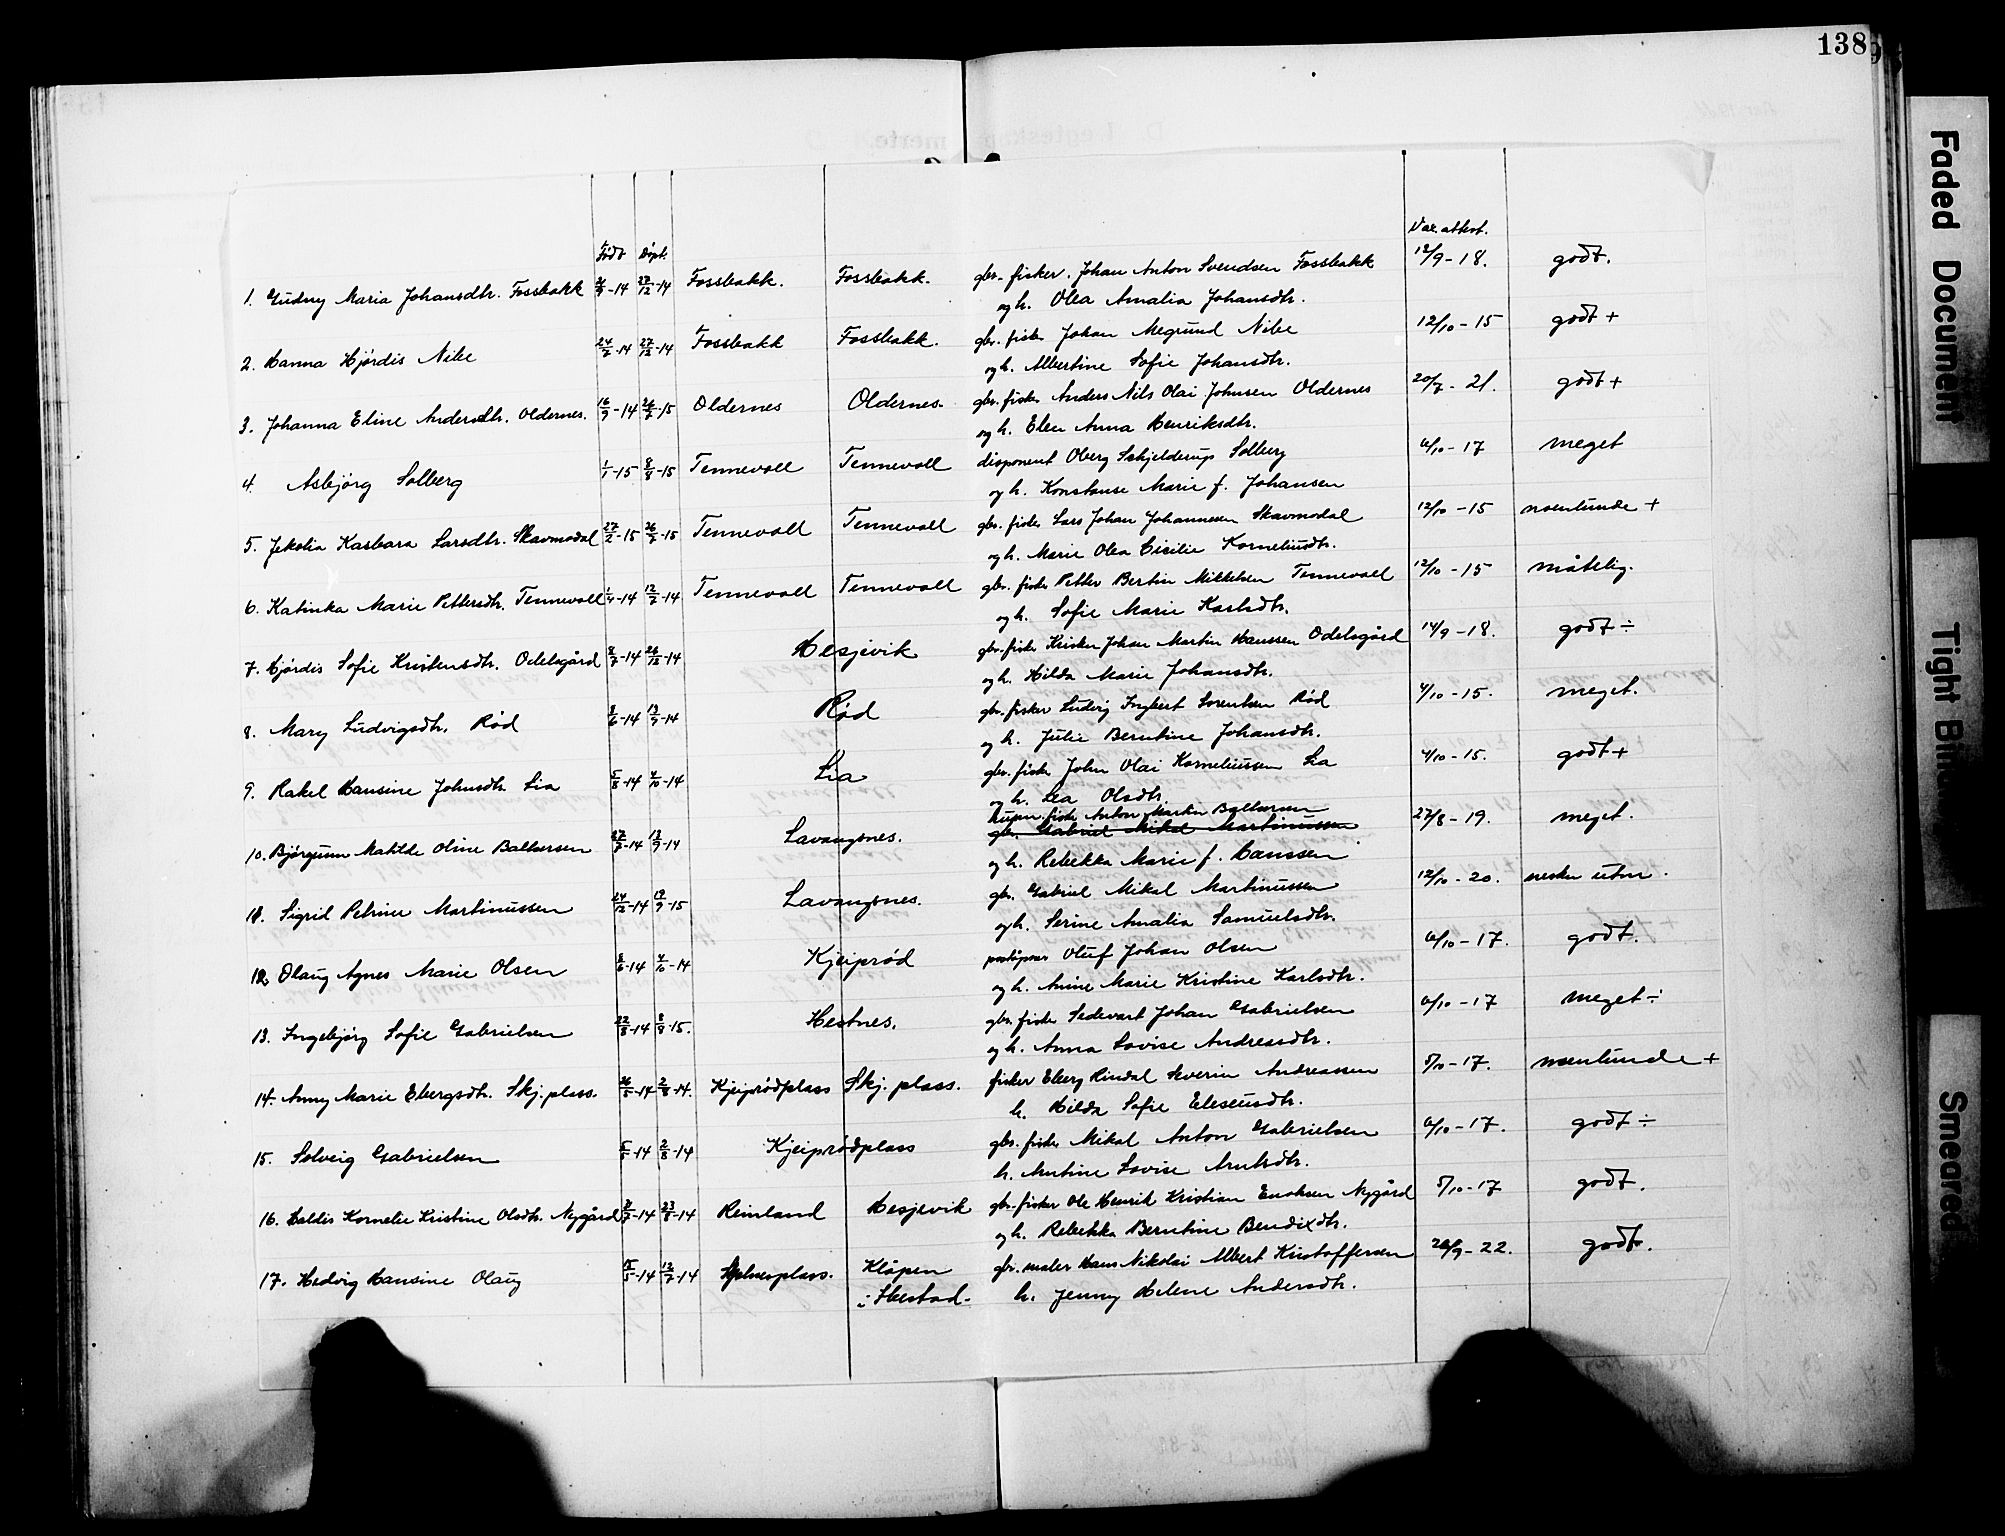 138
Født Døpt. Vac. attest.
1. Gudny Maria Johansdtr. Fossbakk -14 27/12-14 Fossbakk. Fossbakk. gbr. fisker. Johan Anton Svendsen Fossbakk 12/9-18. godt.
og h. Olea Amalia Johansdtr.
2. Hanna Hjørdis Nibe 24/7-14 27/12-14 Fossbakk Fossbakk. gbr. fisker Johan Megrund Nibe 12/10-15 godt +
og h. Albertine Sofie Johansdtr.
3. Johanna Eline Andersdtr. Oldernes. 16/9-14 26/7-15 Oldernes Oldernes. gbr. fisker Anders Nils Olai Johnsen Oldernes 20/7-21. godt +
og h. Elen Anna Henriksdtr.
4. Asbjørg Solberg 1/1-15 8/8-15 Tennevoll Tennevoll disponent Oberg Schjelderup Solberg 6/10-17 meget
og h. Konstanse Marie f. Johansen
5. Jekolia Kasbara Larsdtr. Skavmodal 27/2-15 26/7-15 Tennevoll Tennevoll gbr. fisker Lars Johan Johannesen Skavmodal 12/10-15 noenlunde +
og h. Marie Olea Cicilie Korneliusdtr.
6. Katinka Marie Pettersdtr. Tennevoll -14 12/7-14 Tennevoll Tennevoll gbr. fisker Petter Bertin Mikkelsen Tennevoll 12/10-15 måtelig.
og h. Sofie Marie Karlsdtr.
7. Hjørdis Sofie Kristensdtr. Odelsgård 8/7-14 26/12-14 Hesjevik gbr. fisker Kristen Johan Martin Hanssen Odelsgård 14/9-18. godt ÷
og h. Hilda Marie Johansdtr.
8. Mary Ludvigsdtr. Rød 8/6-14 13/9-14 Rød gbr. fisker Ludvig Ingbert Lorentsen Rød 4/10-15. meget.
og h. Julie Berntine Johansdtr.
9. Rakel Hansine Johnsdtr. Lia 5/8-14 4/10-14 Lia gbr. fisker John Olai Korneliussen Lia 4/10-15. godt +
og h. Lea Olsdtr.
fisker Anton Martin Baltersen
10. Bjørgunn Matilde Oline Baltersen 27/7-14 13/9-14 Lavangsnes. gbr. Gabriel Mikal Martinussen 27/8-19. meget.
og h. Rebekka Marie f. Hanssen
11. Sigrid Petrine Martinussen 24/12-14 19/9-15 Lavangsnes. gbr. Gabriel Mikal Martinussen 12/10-20. nesten utm.
og h. Serine Amalia Samuelsdtr.
12. Olaug Agnes Marie Olsen 8/6-14 4/10-14 Kjeiprød Oluf Johan Olsen 6/10-17. godt.
og h. Anine Marie Kristine Karlsdtr.
13. Ingebjørg Sofie Gabrielsen 22/8-14 8/8-15. Hestnes. gbr. fisker Sedevart Johan Gabrielsen 6/10-17 meget ÷
og h. Anna Lovise Andreasdtr.
14. Anny Marie Ebergsdtr. Skj. plass. 26/5-14 2/8-14. Kjeiprødplass Skj. plass. fisker Eberg Rindal Severin Andreassen 5/10-17. noenlunde +
h. Hilda Sofie Eliseusdtr.
15. Solveig Gabrielsen 5/5-14 2/8-14 Kjeiprødplass gbr. fisker Mikal Anton Gabrielsen 6/10-17. godt ÷
h. Antine Lovise Arntsdtr.
16. Haldis Kornelie Kristine Olsdtr. Nygård -14 23/8-14 Reinland Hesjevik gbr. fisker Ole Henrik Kristian Enoksen Nygård 5/10-17 godt.
og h. Rebekka Berntine Bendixdtr.
17. Hedvig Hansine Olaug -14 12/7-14 Kløpen gbr. maler Hans Nikolai Albert Kristoffersen 26/9-22. godt.
i Ibestad. h. Jenny Helene Andersdtr.
Faded Document
Tight Bin
Smeared